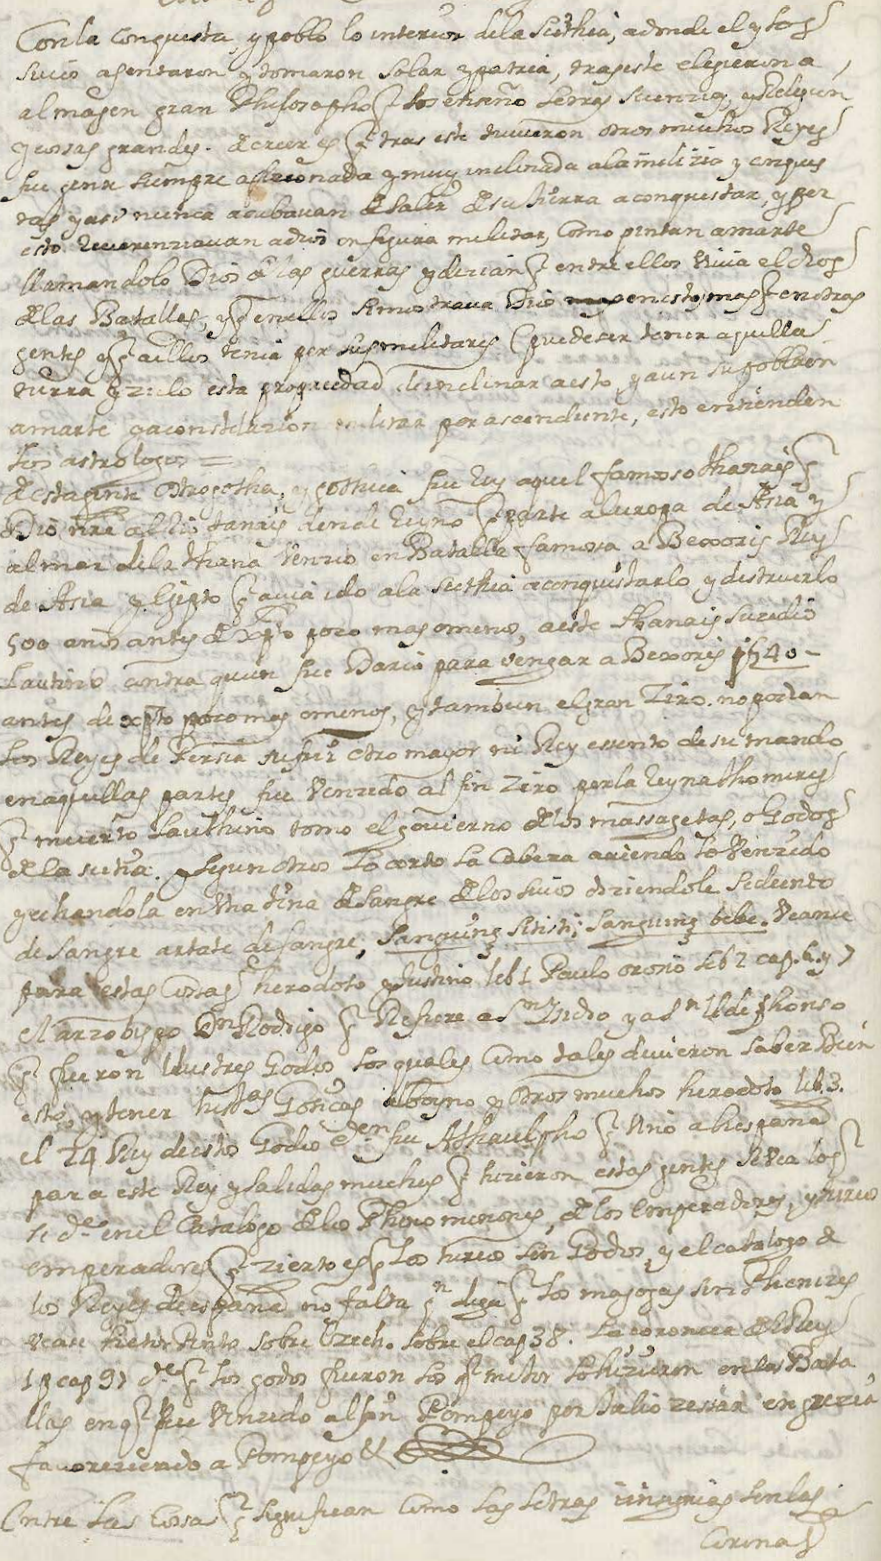 Con la conquista, y poblo lo interior dela Scithia, adonde el y los
suios asentaron y tomaron solar y patria, tras este elegieron a
al magen gran Philosopho q̃ los enseño letras sciencias, y Religion
y cosas grandes. de creer es q̃ tras este tuvieron otros muchos Reyes
fue gente siempre aficionada y muy inclinada ala milizia y conquis
tas y assi nunca acabavan de salir de su tierra a conquistar, y por
esto Reverenziavan a dios en figura militar, como pintan a marte
llamandolo Dios de las guerras y dizian q̃ entre ellos vivia el dios
de las Batallas, y q̃ en ellos se mostrava Dios en esto mas q̃ en otras
gentes y q̃ a ellos tenia por sus militares (puede ser tener aquella
tierra y zielo esta propiedad de inclinar a esto, y aun su
a marte y a constelazion militar por ascendente, esto entienden
los astrologos =
de esta gente Ostrogotha, y gothica fue Rey aquel famoso thanais q̃
Dio nre al Rio tanais q̃ parte a Europa de Asia y
al mar dela thana venzio en Batalla famosa a Bexoris Rey
de Asia y Egipto q̃ avia ido ala Scithia a conquistarlo y distruirlo
500 años antes de Xp̃to poco mas o menos, a este thanais suzedio
Lauthino contra quien fue Dario para vengar a Bexoris 1540
antes de xp̃to poco mas o menos, y tambien el gran Ziro. no podian
los Reyes de Persia sufrir otro mayor ni Rey essento de su mando
en aquellas partes fue venzido al fin Ziro por la Reyna thomires
q̃ muerto Lauthino tomo el govierno de los massagetas, o Godos
de la scitia. y segun otros lo corto la cabeza aviendo lo venzido
y echandola en vna tina de sangre de los suios diziendole sediento
de sangre artate de sangre, Sanguinẽ sitisti; Sanguinẽ bebe. Veanse
para estas cosas herodoto y Justino lib 1 Paulo orosio lib 2 cap. 6. y 7
el arzobispo Dn Rodrigo q̃ Refiere a Sn Ysidro y a Sn Ildephonso
q̃ fueron Ilustres Godos los quales como tales divieron saber Bien
esto, y tener histas Goticas y otros muchos herodoto lib. 3.
el 24 Rey de estos Godos fue Athaulpho q̃ vino a hespaña
para este Rey y salidas muchas q̃ hizieron estas gentes se vea los q̃
se de en el Catalogo de los de los Emperadores, y turcos
emperadores q̃ zierto es q̃ los turcos son Godos, y el catalogo de
los Reyes de españa no falta qn diga q̃ los magogas son
vease Hector Pinto sobre Ezech. sobre el cap 38. La coronica del Rey
1 p cap 97 q̃ los godos fueron los q̃ mejor lo hizieron en las Bata
llas en q̃ fue venzido al fin Pompeyo por Julio zessar en grezia
favoreziendo a Pompeyo &
Entre las cosas q̃ significan como las letras insignias son las
Corona